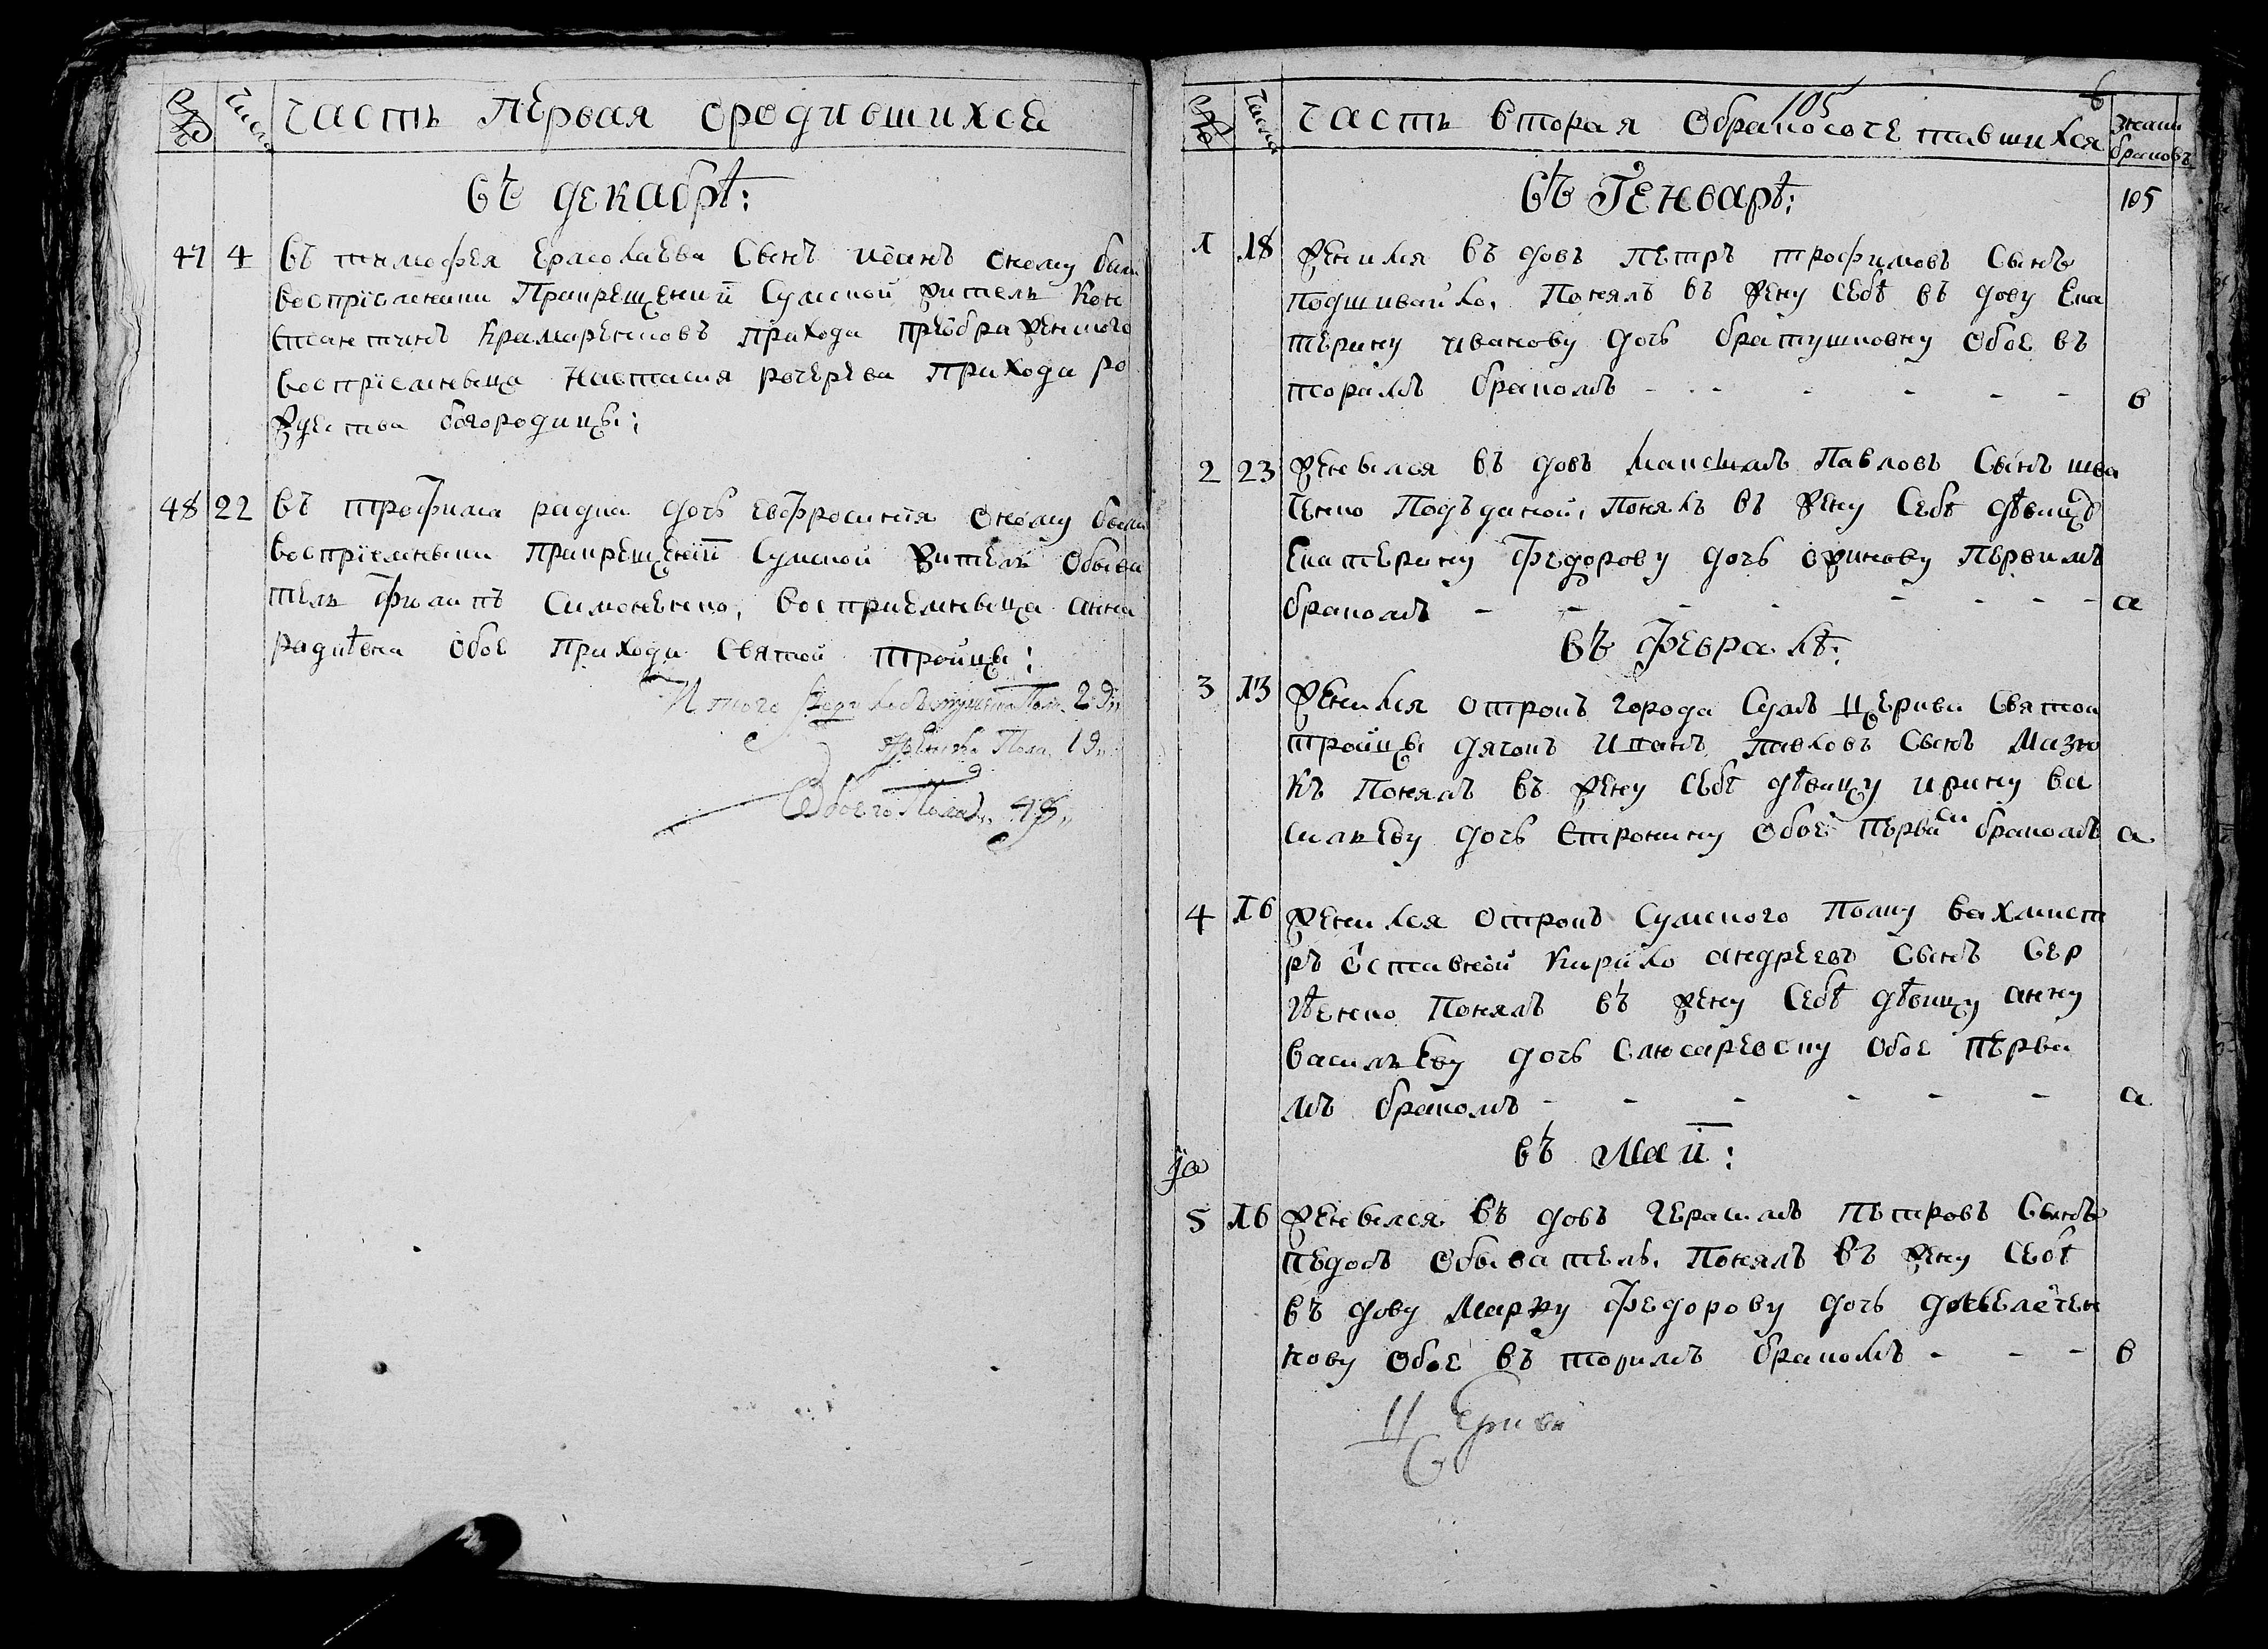 Числа
часть первая ородившихся
въ декабрѣ:
47 4 въ тимофея Ермолаева Сынъ иоанъ оному были
воспрїемники Прикрещенїи Сумской житель Кон
стантинъ Крамаренковъ прихода преображенского
воспрїемнвица Настасия рогерева прихода ро
ждества богородицы:
48 22 въ трофима радка дочь евфросинїя оному были
воспрїемныки Прикрещенїи Сумской житель Обыва
тель филипъ Симоненко, восприемнвица анна
радѣвна обое прихода Святой тройцы:
Итого мужеска Пола 29,,
женска Пола 19,,
Обоего Пола,, 48,,
Числа
часть вторая обракосочетавшихся
105
6
браковъ
въ Генварѣ:
105
1 18 женился въ довъ Петръ трофимовъ Сынъ
подшивайло, Понялъ въ жену себѣ въ дову Ека
терину иванову дочь братушковну обое въ
торамъ бракомъ - - - - - - в
2 23 женылся въ довъ Максымъ Павловъ Сынъ шва
ченко Подъданой, Понялъ въ жену Себѣ дѣвицу
Екатерину Федорову дочь Первимъ
бракомъ - - - - - - - - а
въ Февралѣ:
3 13 женился отрокъ города Сумъ церкви Святои
тройцы дячокъ Иванъ павловъ Сынъ Мазню
къ Понялъ въ жену себѣ дѣвицу ирину ва
сильеву дочь Строкину обое Перви бракомъ а
4 16 женился отрокъ Сумского Полку вахмист
ръ ѡставной Кирило андреевъ Сынъ Сер
гѣенко Понялъ въ жену Себѣ дѣвицу анну
Васильеву дочь Слюсаревску обое Перви
мъ бракомъ - - - - - - а
въ Маїи:
5 16 женылся въ довъ Герасимъ Петровъ Сынъ
педосъ обыватель, Понялъ въ жену Себѣ
въ дову Марку Федорову дочь
кову обое въ торимъ бракомъ - - - в
Церкви